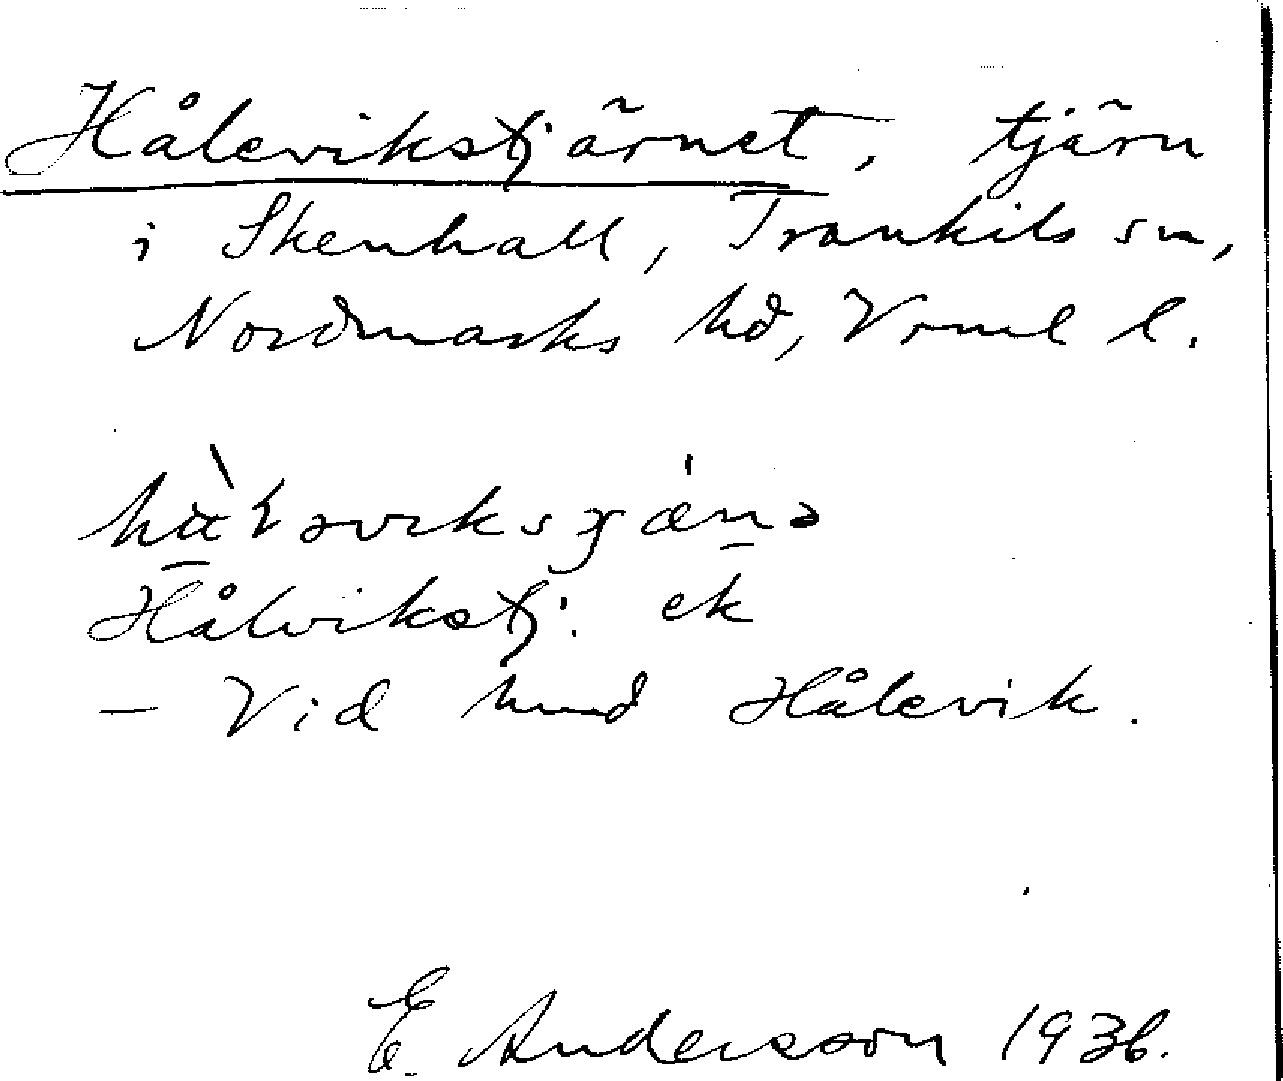 Hålevikstjärnet, tjärn
i Skenhall, Trankils sn,
Nordmarks hd, Vrml l.
Hålvikstj: ek
— Vid hmd Hålevik.
E. Andersson 1936.